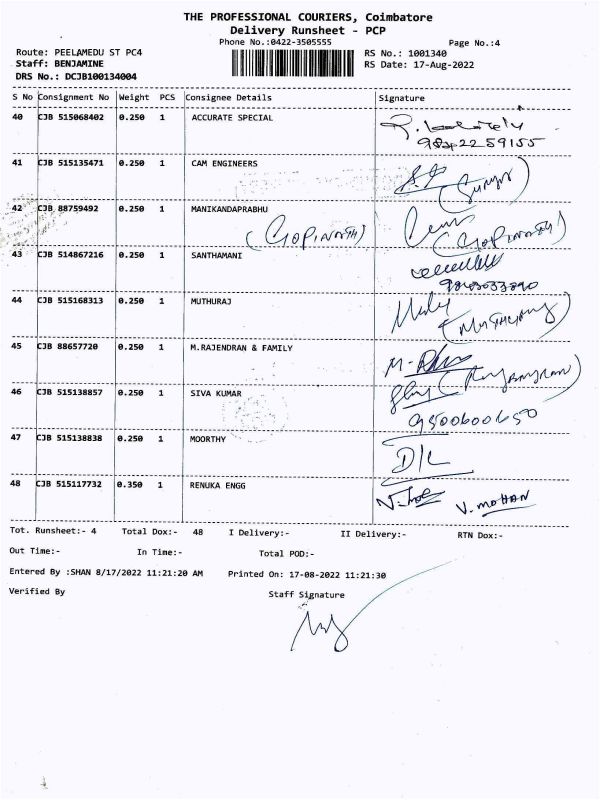 THE PROFESSIONAL COURIERS, Coimbatore
Delivery Runsheet - PCP
Phone No.:0422-3505555
Page No.:4
Route: PEELAMEDU ST PC4
RS No.: 1001340
Staff: BENJAMINE
RS Date: 17-Aug-2022
DRS No.: DCJB100134004
S No Consignment No Weight PCS Consignee Details Signature
40 CJB 515068402 0.250 1 ACCURATE SPECIAL
41 CJB 515135471 0.250 1 CAM ENGINEERS
42 CJB 88759492 0.250 1 MANIKANDAPRABHU
(GOPINATH) (GOPINATH)
43 CJB 514867216 0.250 1 SANTHAMANI
44 CJB 515168313 0.250 1 MUTHURAJ
45 CJB 88657720 0.250 1 M.RAJENDRAN & FAMILY
46 CJB 515138857 0.250 1 SIVA KUMAR
9500600650
47 CJB 515138838 0.250 1 MOORTHY
D/L
48 CJB 515117732 0.350 1 RENUKA ENGG
V. MOHAN
Tot. Runsheet:- 4 Total Dox:- 48 I Delivery:- II Delivery:- RTN Dox:-
Out Time:- In Time:- Total POD:-
Entered By :SHAN 8/17/2022 11:21:20 AM Printed On: 17-08-2022 11:21:30
Verified By Staff Signature